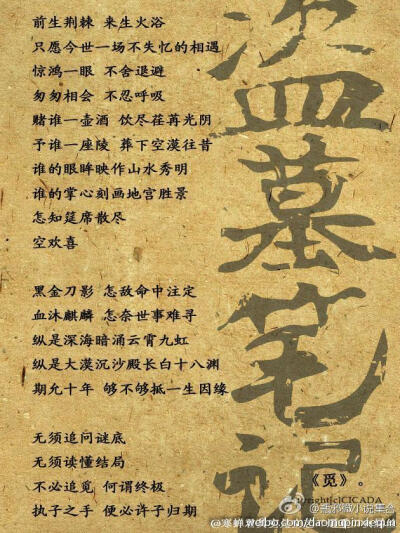 前生荆棘 来生火浴
只愿今世一场不失忆的相遇
惊鸿一眼 不舍退避
匆匆相会 不忍呼吸
赌谁一壶酒 饮尽荏苒光阴
予谁一座陵 葬下空漠往昔
谁的眼眸映作山水秀明
谁的掌心刻画地宫胜景
怎知筵席散尽
空欢喜
黑金刀影 怎敌命中注定
血沐麒麟 怎奈世事难寻
纵是深海暗涌云霄九虹
纵是大漠沉沙殿长白十八渊
期允十年 够不够抵一生因缘
无须追问谜底
无须读懂结局
不必追觅 何谓终极
执子之手 便必许子归期
盗墓笔记
《觅》。